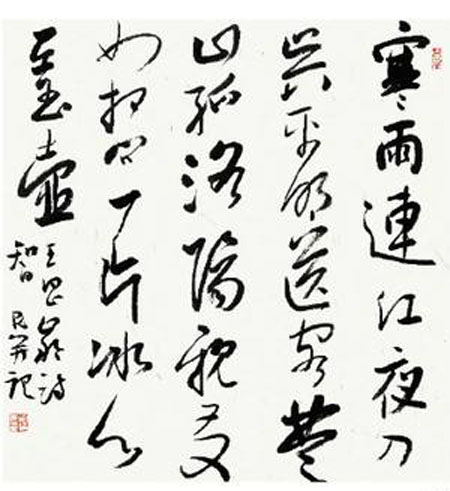 寒雨連江夜入
吳平明送客楚
山孤洛陽親友
如相問一片冰心
在玉壺
王昌齡詩
智